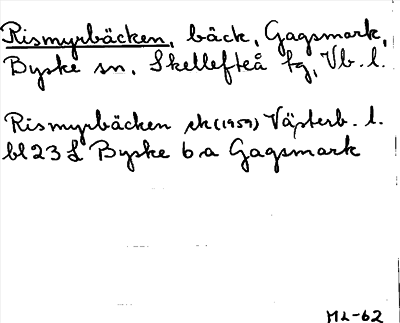 Rismyrbäcken, bäck, Gagsmark,
Byske sn, Skellefteå tg, Vb. l.
Rismyrbäcken ek (1959) Västerb. l.
bl 23 L Byske 6 a Gagsmark
ML-62